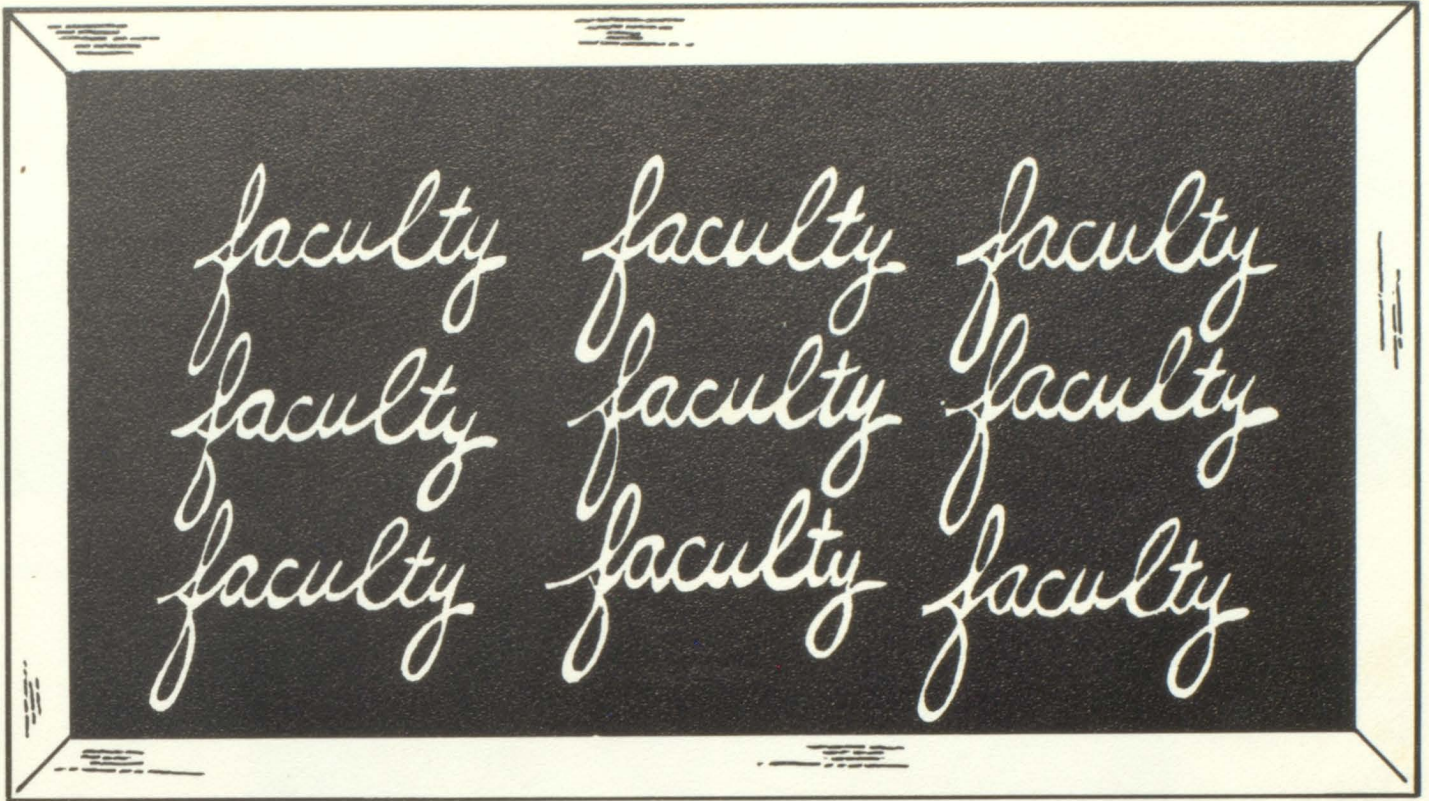 faculty faculty faculty
faculty faculty faculty
faculty faculty faculty